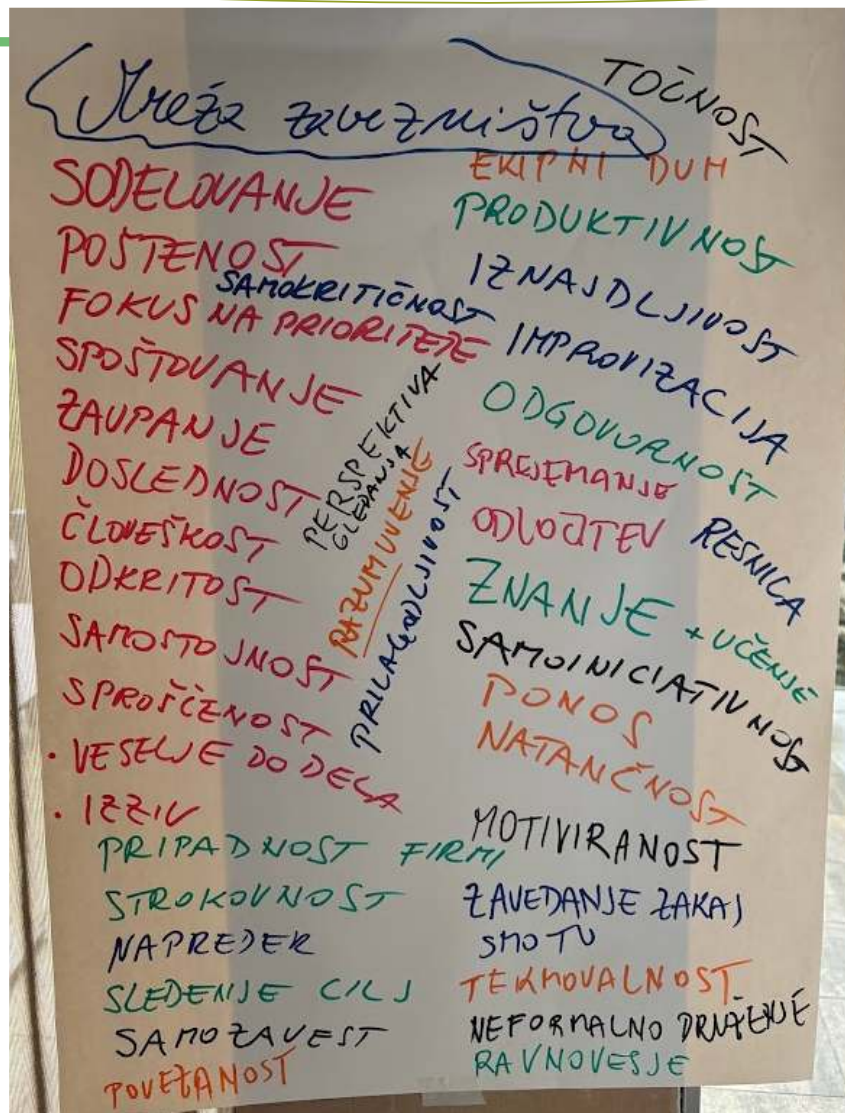 Mreža zavezništva
SODELOVANJE
POŠTENOST
SAMOKRITIČNOST
FOKUS NA PRIORITETE
SPOŠTOVANJE
ZAUPANJE
DOSLEDNOST
ČLOVEŠKOST
ODKRITOST
SAMOSTOJNOST
SPROŠČENOST
• VESELJE DO DELA
• IZZIV
PRIPADNOST FIRMI
STROKOVNOST
NAPREDEK
SLEDENJE CILJ
SAMOZAVEST
POVEZANOST
PERSPEKTIVA
GLEDANJA
RAZUMUVENJE
PRILAGODLJIVOST
TOČNOST
EKIPNI DUH
PRODUKTIVNOST
IZNAJDLJIVOST
IMPROVIZACIJA
ODGOVORNOST
SPREJEMANJE
ODLOČITEV
RESNICA
ZNANJE + UČENJE
SAMOINICIATIVNOST
PONOS
NATANČNOST
MOTIVIRANOST
ZAVEDANJE ZAKAJ
SMO TU
TEKMOVALNOST
NEFORMALNO DRUŽENJE
RAVNOVESJE